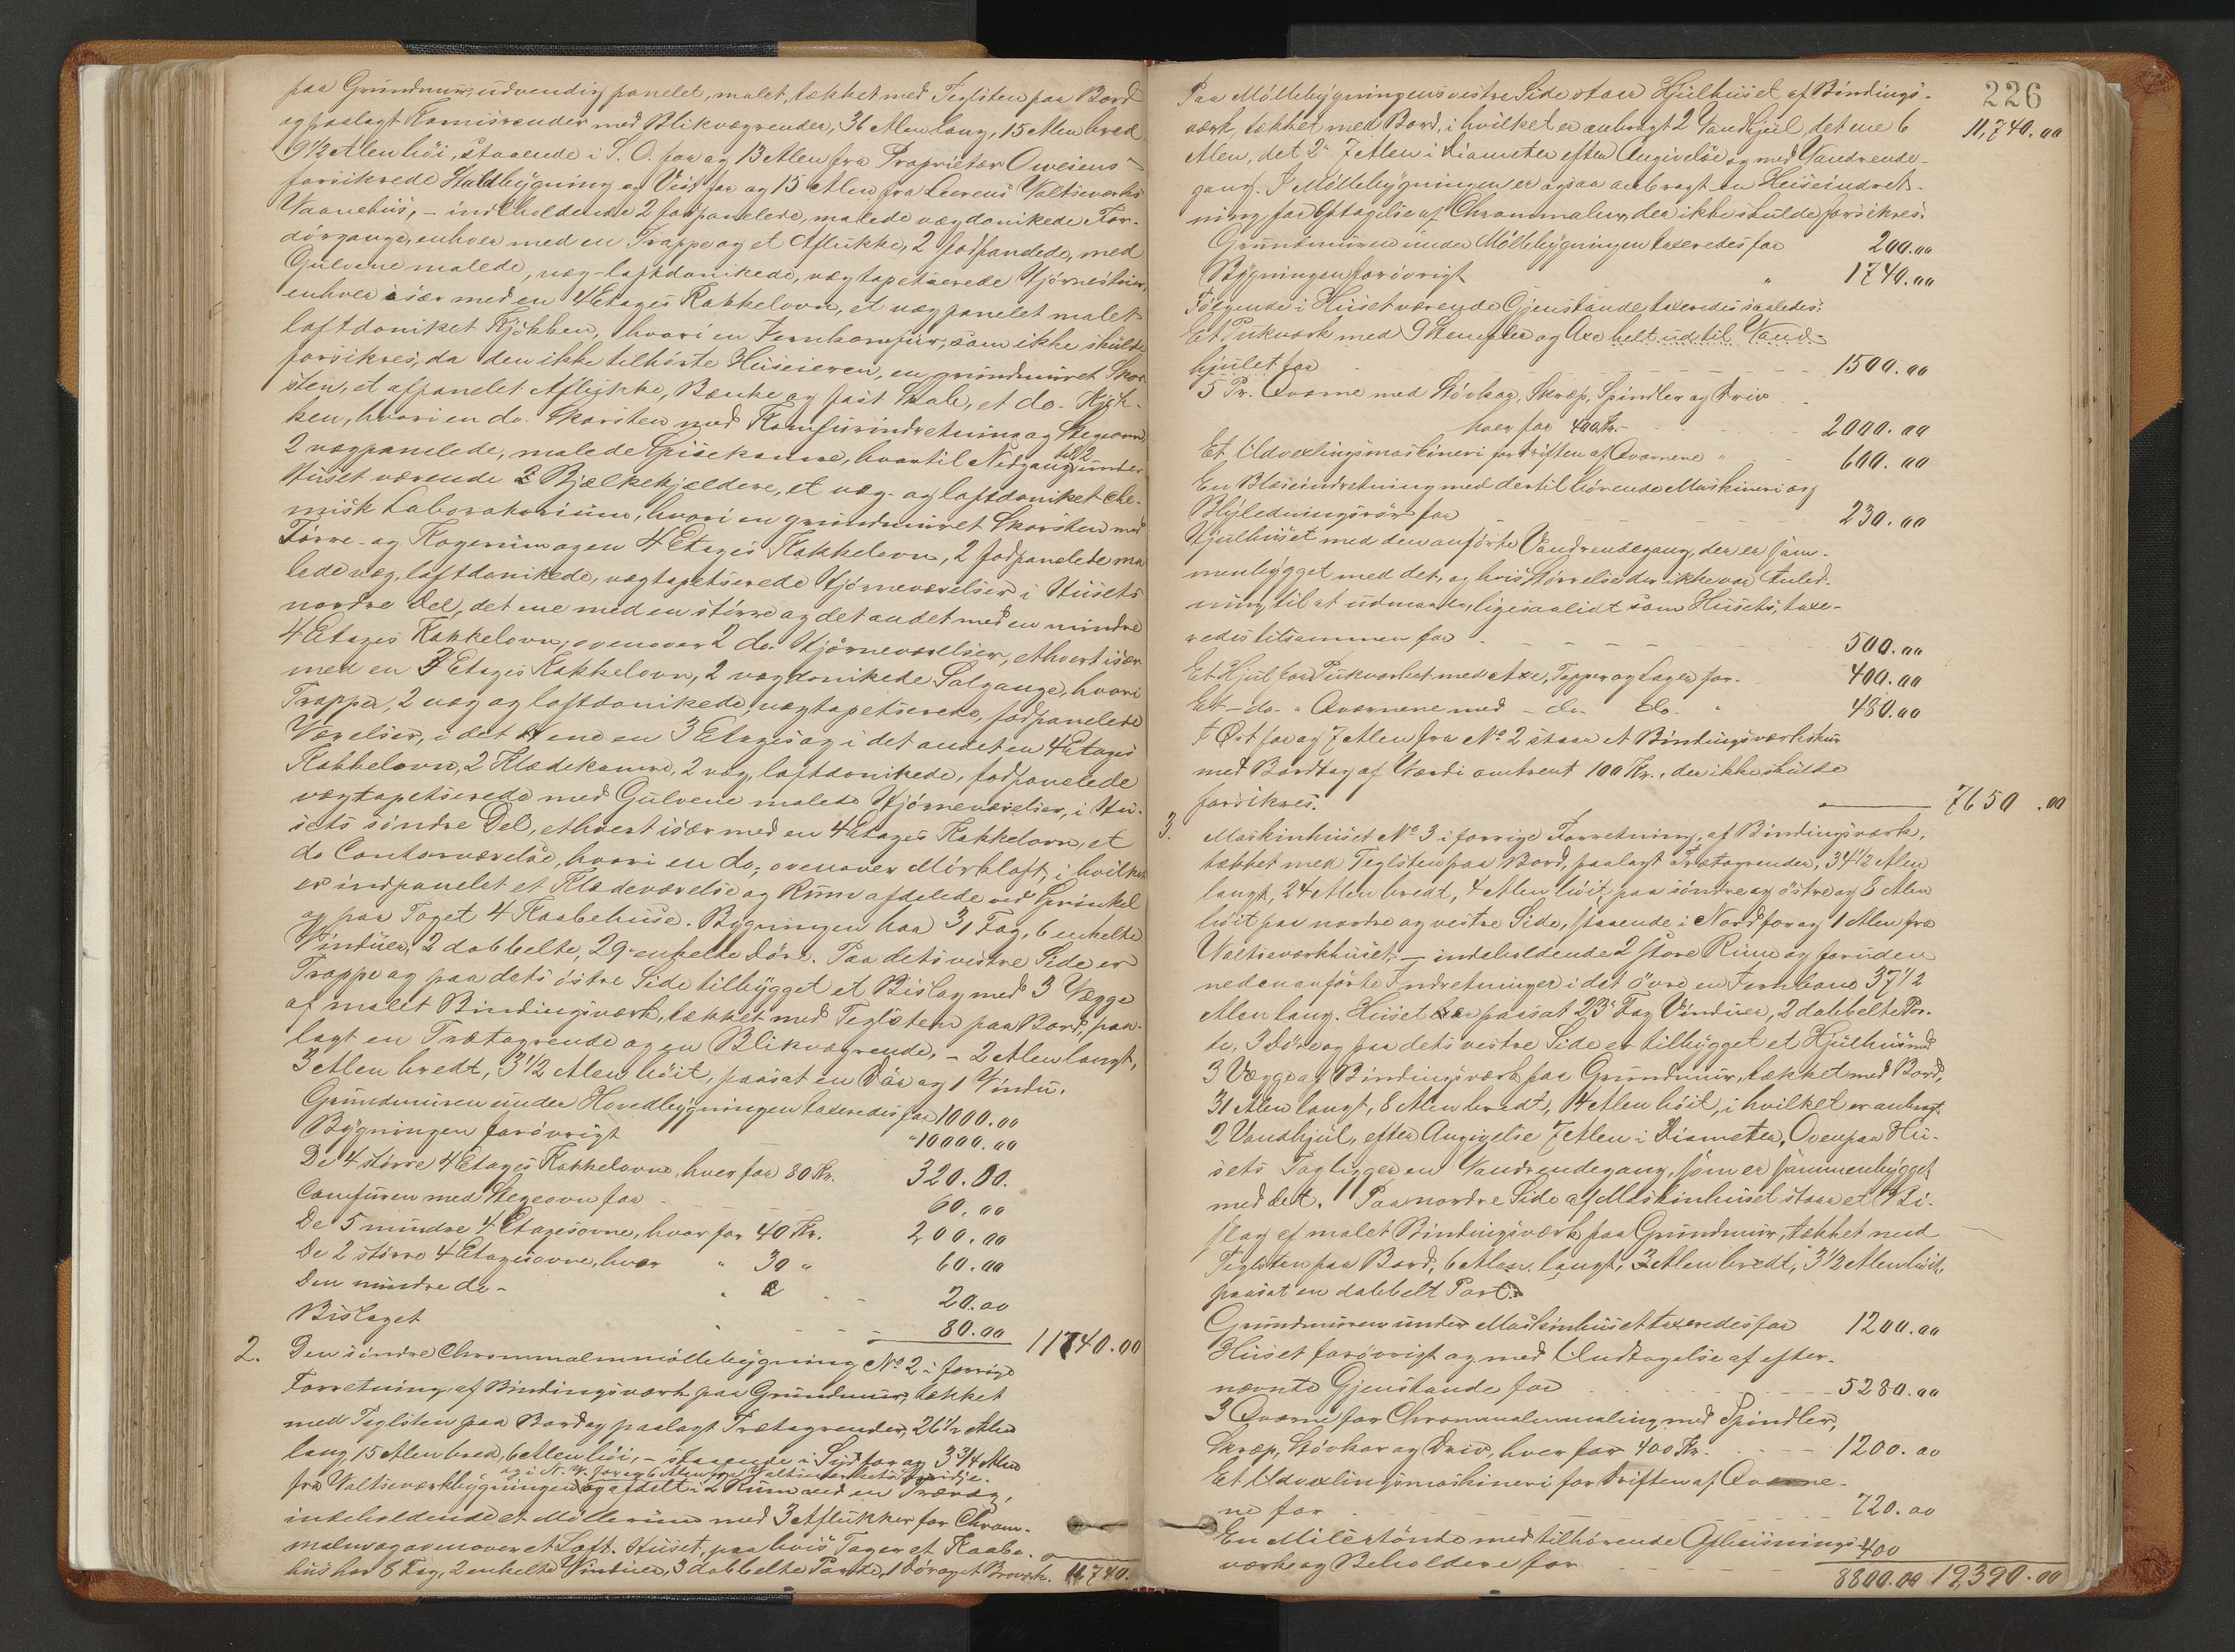 paa Grundmur, udvendig panelet, malet, tækket med Teglsten paa Bord
og paalagt Karnisrender med Blikvægrender, 36 Alen lang, 15 Alen bred
9½ Alen höi, staaende i S. O. for og 13 Alen fra Proprietær Owesens
forsikrede Staldbygning og Vest for og 15 Alen fra Leerens Valtseværks
Vaanehus, - indeholdende 2 fodpanelede, malede vægdonikede For-
dörgange, enhver med en Trappe og et Aflukke, 2 fodpanelede, med
Gulvene malede, væg-loftdonikede, vægtapetserede Hjörnestuer,
enhver især med en 4 Etages Kakkelovn, et vægpanelet malet
loftdoniket Kjökken, hvori en Jernkomfur, som ikke skulde
forsikres, da den ikke tilhörte Huseieren, en grundmuret Skor-
sten, et afpanelet Aflukke, Bænke og fast Skab, et do. Kjök-
ken, hvori en do. Skorsten med Komfurindretning og Stegeovn,
2 vægpanelede, malede Spisekamre, hvortil Nedgang til 2 under
Huset værende 2 Bjælkekjældere, et væg- og loftdoniket che-
misk Laboratorium, hvori en grundmuret Skorsten med
Törre- og Kogerum og en 4 Etages Kakkelovn, 2 fodpanelede ma-
lede væg, loftdonikede, vægtapetserede Hjörneværelser i Husets
nordre Del, det ene med en större og det andet med en mindre
4 Etages Kakkelovn; ovenover 2 do. Hjörneværelser, ethvert især
med en 3 Etages Kakkelovn, 2 vægdonikede Salgange, hvori
Trapper, 2 væg og loftdonikede, vægtapetserede, fodpanelede
Værelser, i det ene en 3 Etages og i det andet en 4 Etages
Kakkelovn, 2 Klædekamre, 2 væg, loftdonikede, fodpanelede
vægtapetserede med Gulvene malede Hjörneværelser, i Hu-
sets söndre Del, ethvert især med en 4 Etages Kakkelovn, et
do Contorværelse, hvori en do; ovenover Mörkloft, i hvilket
er indpanelet et Klædeværelse og Rum afdelede ved Sprinkel
og paa Taget 4 Kaabehuse. Bygningen har 31 Fag, 6 enkelte
Vinduer, 2 dobbelte, 29 enkelte Döre. Paa dets vestre Side er
Trappe og paa dets östre Side tilbygget et Bislag med 3 Vægge
af malet Bindingsværk, tækket med Teglsten paa Bord, paa-
lagt en Trætagrende og en Blikvægrende, - 2 Alen langt,
3 Alen bredt, 3½ Alen höit, paasat en Dör og 1 Vindu.
Grundmuren under Hovedbygningen taxeredes for 1000.00
Bygningen forövrigt " 10000.00
De 4 större 4 Etages Kakkelovne, hver for 80 Kr. 320.00.
Comfuren med Stegeovn for 60.00
De 5 mindre 4 Etagesovne, hver for 40 Kr. 200.00
De 2 större 4 Etagesovne, hver " 30 " 60.00
Den mindre do - " 20.00
Bislaget " 80.00 11740.00
2. Den söndre Chrommalmmöllebygning No 2 i forrige
Forretning af Bindingsværk paa Grundmur, tækket
med Teglsten paa Bord og paalagt Trætagrender, 26½ Alen
lang, 15 Alen bred, 6 Alen höi, - staaende i Syd for og 3 3/4 Alen
og i N. V. for og 6 Alen fra Valtseværkets Smidje.
fra Valtseværkbygningen og afdelt i 2 Rum ved en Trævæg,
indeholdende et Möllerum med 3 Aflukker for Chrom-
malm og ovenover et Loft. Huset, paa hvis Tag er et Kaabe-
hus har 8 Fag, 2 enkelte Vinduer, 3 dobbelte Porte, 1 Dör og et Broværk. 11,740.
226
11,740.00
Paa Möllebygningens vestre Side staar Hjulhuset af Bindings-
værk, tækket med Bord, i hvilket er anbragt 2 Vandhjul, det ene 6
Alen, det 2de 7 Alen i Diameter efter Angivelse og med Vandrende-
gang. I Möllebygningen er ogsaa anbragt en Heiseindret-
ning for Optagelse af Chrommalm, der ikke skulde forsikres.
Grundmuren under Möllebygningen taxeredes for 200.00
Bygningen forövrigt " 1740.00
Fölgende i Huset værende Gjenstande taxeredes saaledes:
Et Pukværk med 9 Stempler og Axe helt ud til Vand-
hjulet for 1500.00
5 Pr. Qværne med Stövkar, Skræp, Spindler og Driv
hver for 400 Kr. 2000.00
Et Udvexlingsmaskineri for Driften af Qværnene " 600.00
En Blæseindretning med dertil hörende Maskineri og
Blyledningsrör for 230.00
Hjulhuset med den anförte Vandrendegang, der er sam-
menbygget med det, og hvis Störrelse der ikke var Anled-
ning til at udmaale, ligesaalidt som Husets, taxe-
redes tilsammen for 500.00
Et Hjul for Pukværket med Axe, Tapper og Lager for 400.00
Et - do. " Qværnene med - do. do. " 480.00
I Öst for og 7 Alen fra No 2 staar et Bindingsværkskur
med Bordtag af Værdi omtrent 100 Kr., der ikke skulde
forsikres. 7650.00
3. Maskinhuset No 3 i forrige Forretning, af Bindingsværk,
tækket med Teglsten paa Bord, paalagt Trætagrender, 34½ Alen
langt, 24 Alen bredt, 4 Alen höit, paa söndre og östre og 8 Alen
höit paa nordre og vestre Side, staaende i Nord for og 1 Alen fra
Valtseværkhuset; - indeholdende 2 store Rum og foruden
nedenanförte Indretninger i det övre en Jernbane 37½
Alen lang. Huset har paasat 23 Fag Vinduer, 2 dobbelte Por-
te, 3 Döre og paa dets vestre Side er tilbygget et Hjulhus med
3 Vægge af Bindingsværk paa Grundmur, tækket med Bord,
31 Alen langt, 8 Alen bredt, 4 Alen höit, i hvilket er anbragt
2 Vandhjul, efter Angivelse 7 Alen i Diameter. Ovenpaa Hu-
sets Tag ligger en Vandrendegang, som er sammenbygget
med det. Paa nordre Side af Maskinhuset staar et Bi-
slag af malet Bindingsværk paa Grundmur, tækket med
Teglsten paa Bord, 6 Alen langt, 3 Alen bredt, 3½ Alen höit,
paasat en dobbelt Port.
Grundmuren under Maskinhuset taxeredes for 1200.00
Huset forövrigt og med Undtagelse af efter-
nævnte Gjenstande for 5280.00
3 Qværne for Chrommalmmaling med Spindler,
Skræp, Stövkar og Driv, hver for 400 Kr. 1200.00
Et Udvexlingsmaskineri for Driften af Qværne-
ne for 720.00
En Malertönde med tilhörende Opheisnings-
værk og Beholdere for 400
8800.00 19,390.00